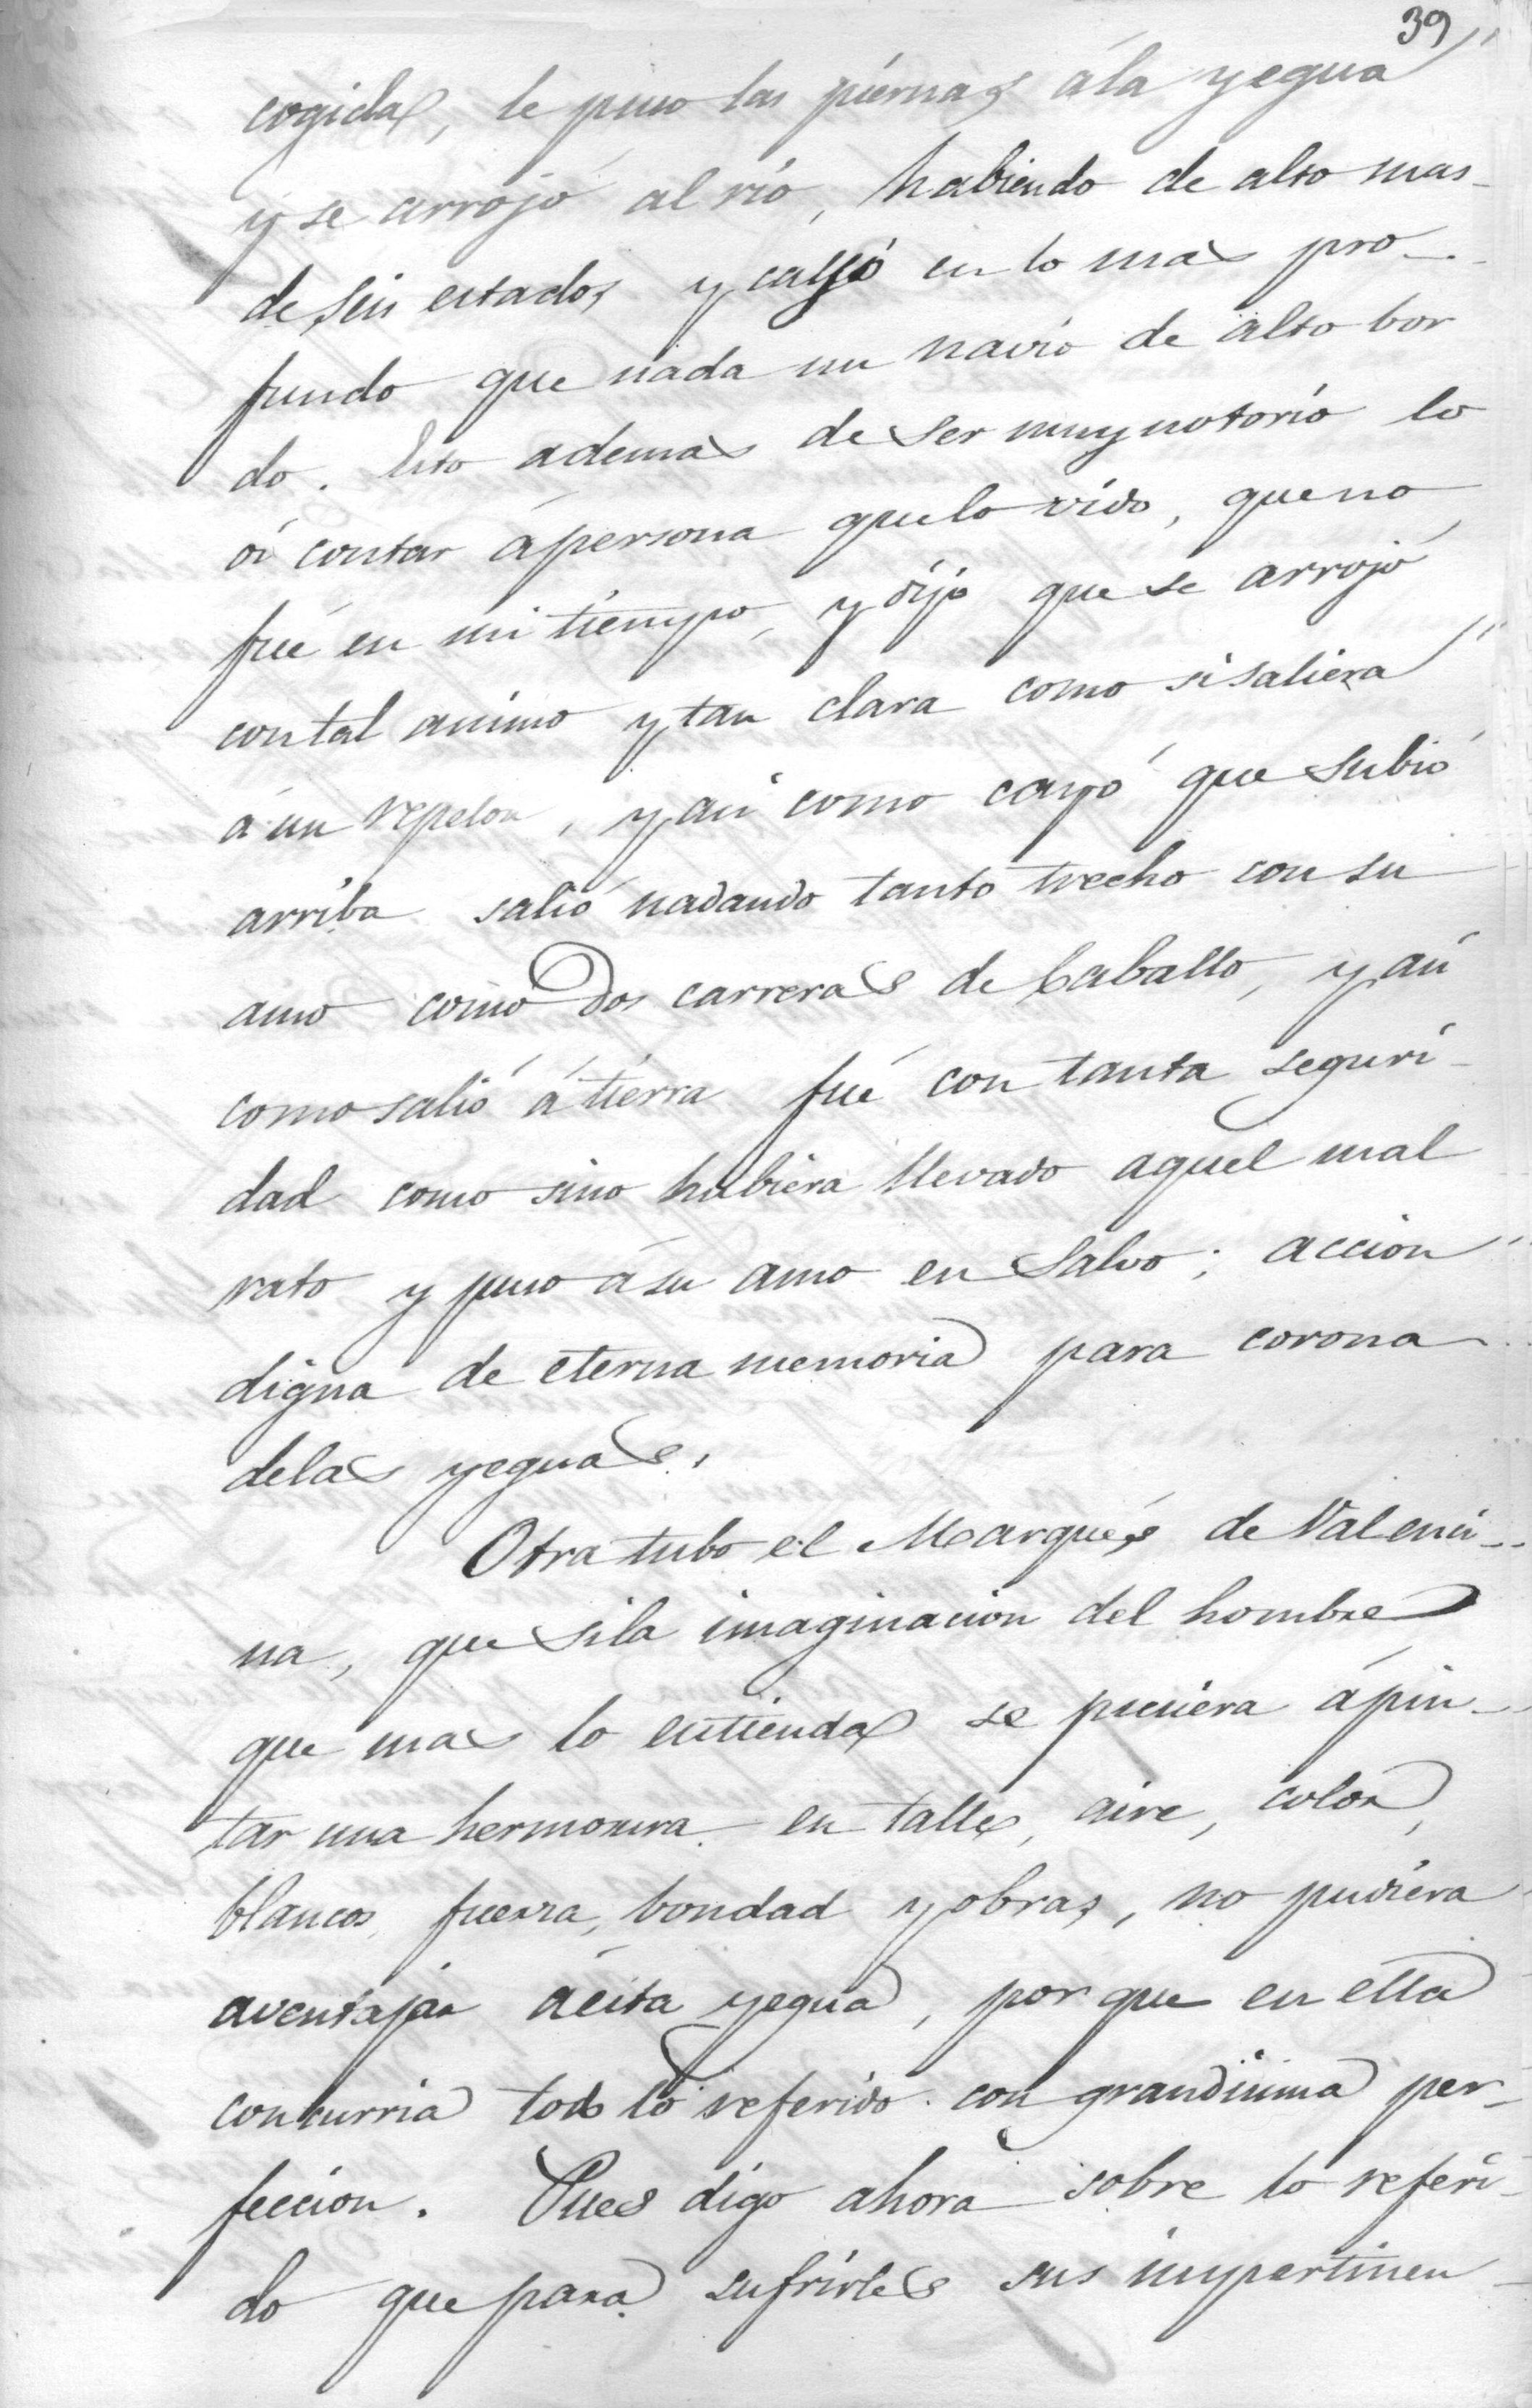 39
cogida, le puso las piernas á la yegua
y se arrojó al rio, habiendo de alto mas
de seis estados y cayó en lo mas pro-
fundo que nada un navio de alto bor
do. Esto ademas de ser muy notorio lo
oí contar á persona que lo vido, que no
fué en mi tiempo, y dijo que se arrojó
con tal animo y tan clara como si saliera
á un repelon, y asi como cayó que subió
arriba salió nadando tanto trecho con su
amo como dos carreras de Caballo, y asi
como salió á tierra fué con tanta seguri-
dad como sino hubiera llevado aquel mal
rato y puso á su amo en salvo; accion
digna de eterna memoria para corona
de las yeguas.
Otra tubo el Marqués de Valenci-
na, que si la imaginacion del hombre
que mas lo entienda se pusiera á pin-
tar una hermosura en talle, aire, color,
blancos, fuerza, bondad y obras, no pudiera
aventajar á esta yegua, por que en ella
concurria todo lo referido con grandisima per-
feccion. Pues digo ahora sobre lo referi-
do que para sufrirles sus impertinen-